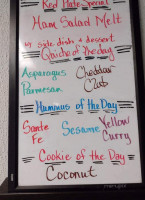 Red Plate Special
Ham Salad Melt
w/ side dish & dessert
Quiche of the day
Asparagus Cheddar
Parmesan Crab
Hummus of the Day
Sante Fe
Sesame
Yellow Curry
Cookie of the Day
Coconut